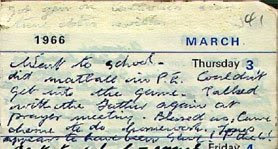 41
1966 MARCH
Thursday 3
Went to school.
did matball in P.E. Couldn't
get into the game. Talked
with the Father again at
prayer meeting. Blessed us, Came
home to do homework,
appear to have been
Friday 4